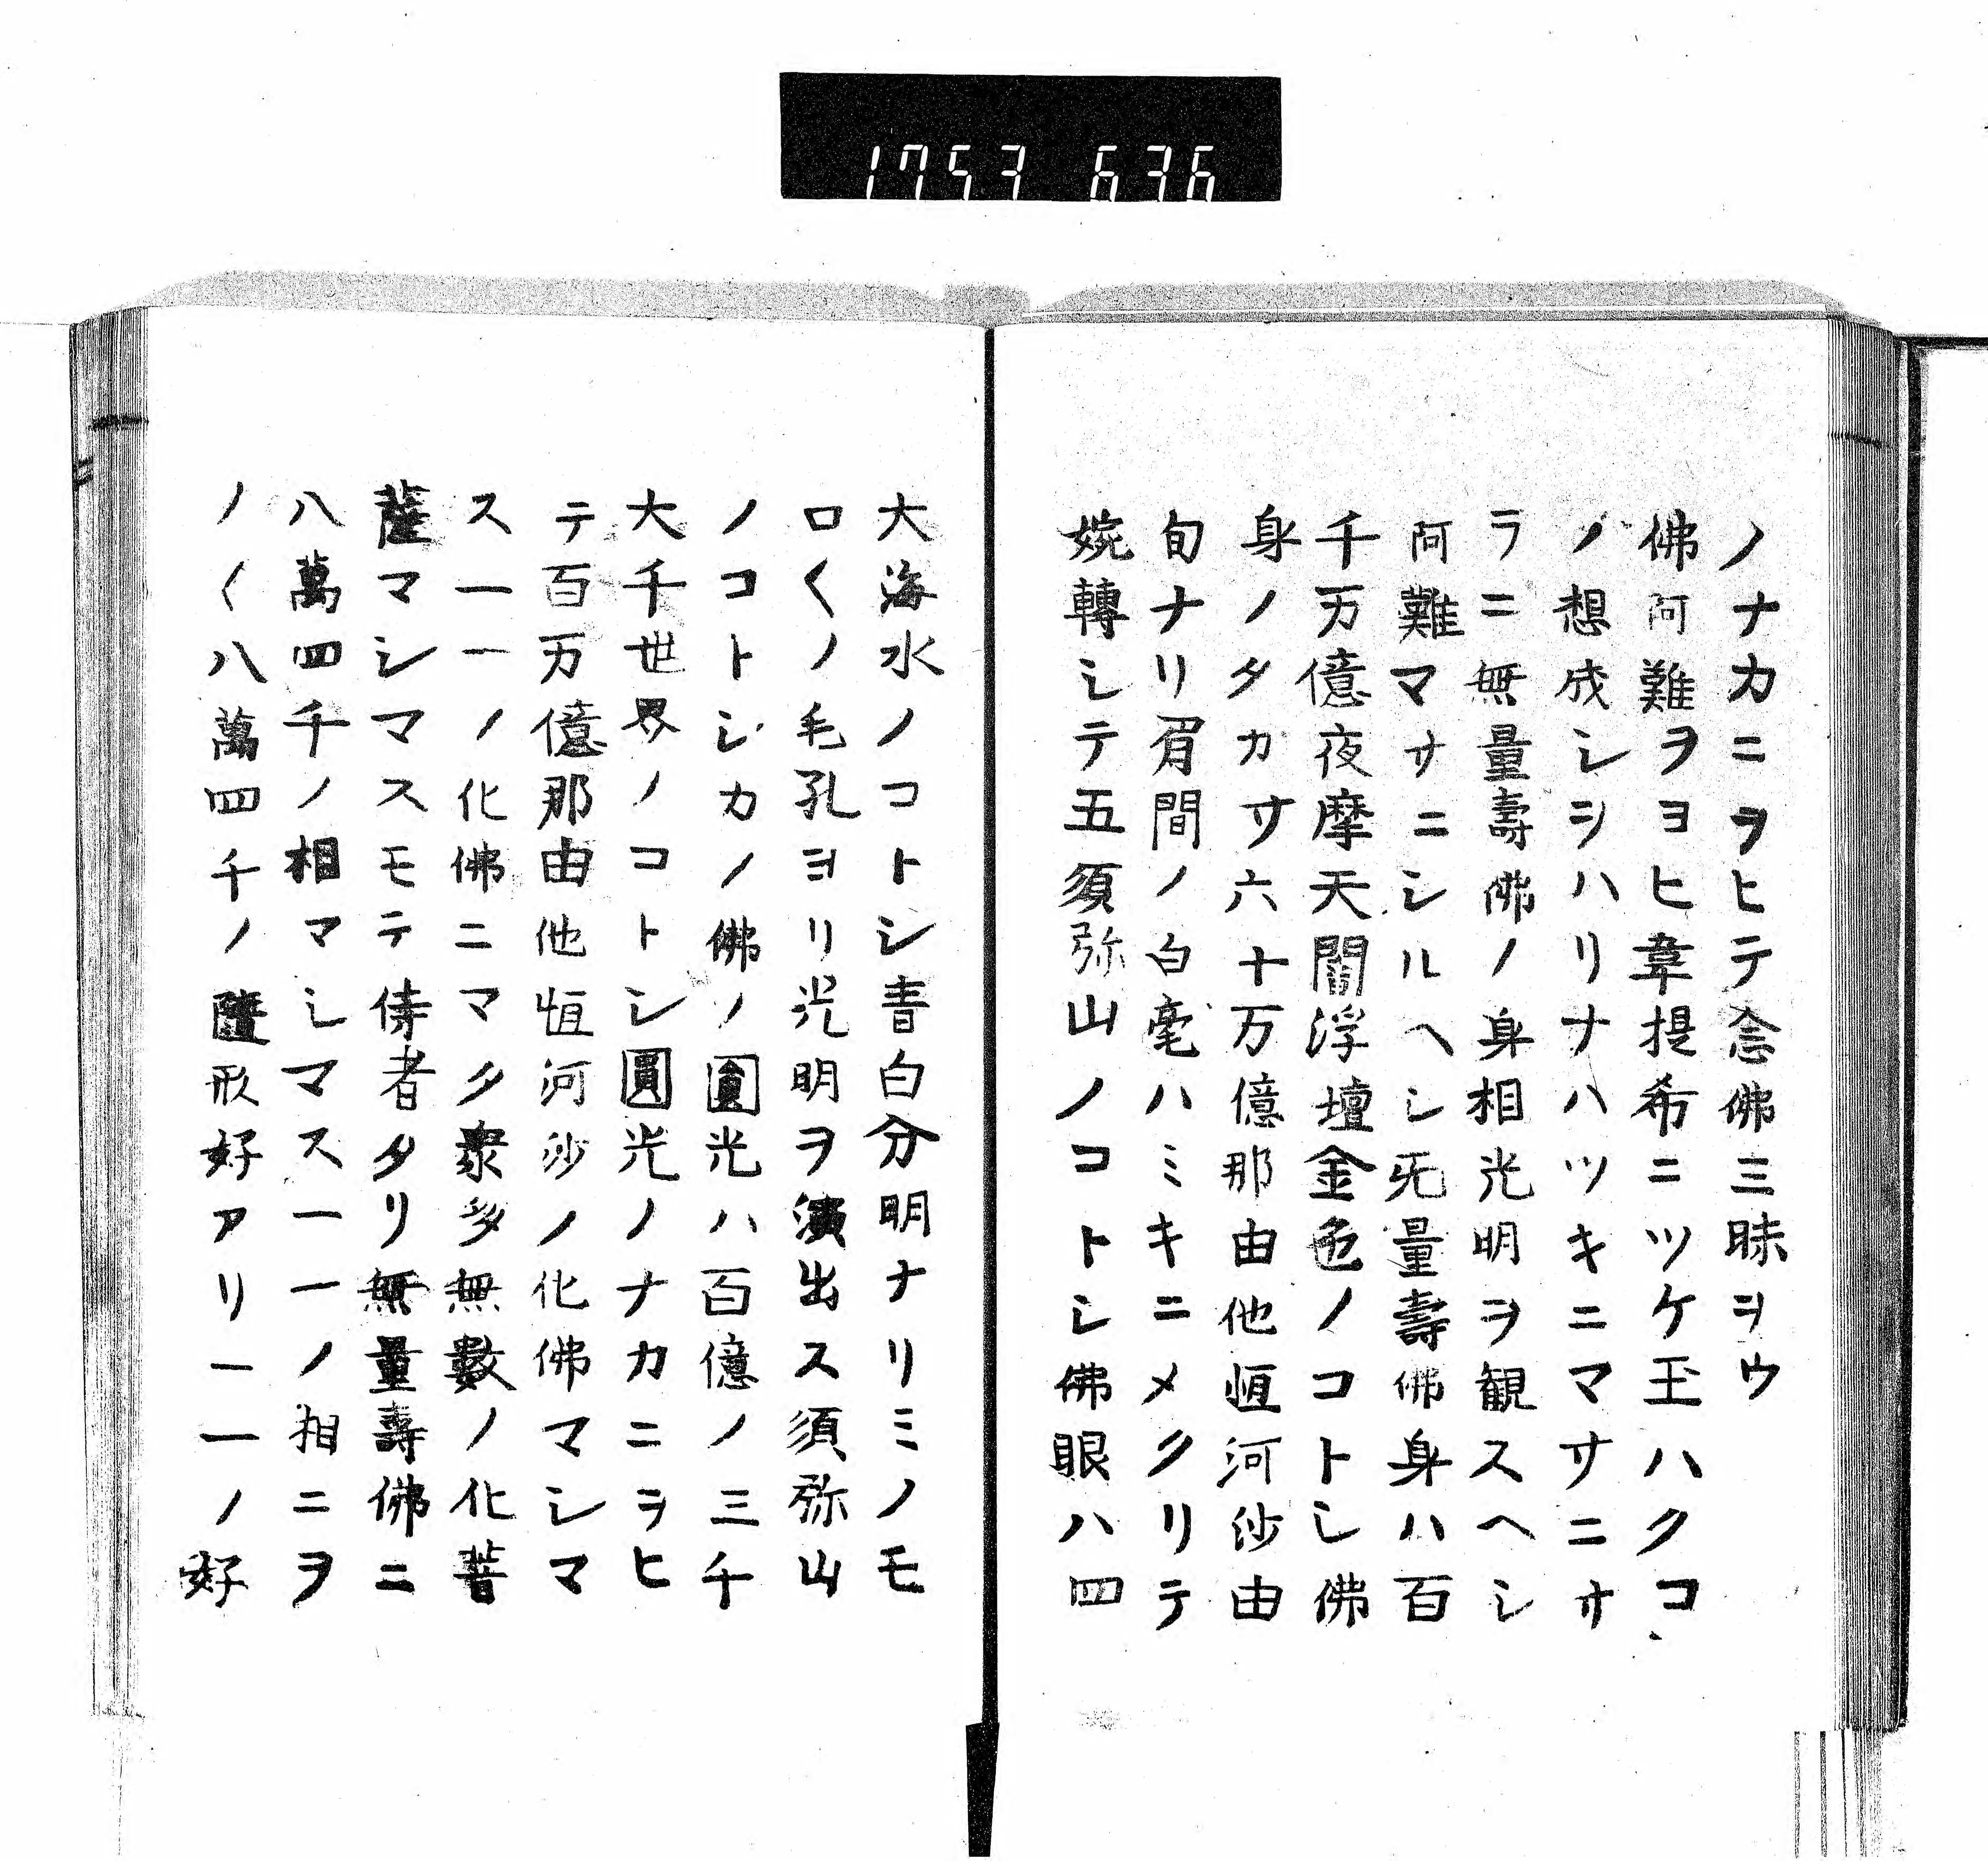 1753 636
ノナカニヲヒテ念佛三昧ヲウ
佛阿難ヲヨヒ韋提希ニツケ玉ハクコ
ノ想成シヲハリナハツキニマサニサ
ラニ無量壽佛ノ身相光明ヲ観スヘシ
阿難マサニシルヘシ无量壽佛身ハ百
千万億夜摩天閻浮壇金色ノコトシ佛
身ノタカサ六十万億那由他恒河沙由
旬ナリ眉間ノ白毫ハミキニメクリテ
婉轉シテ五須弥山ノコトシ佛眼ハ四
大海水ノコトシ青白分明ナリミノモ
ロ〱ノ毛孔ヨリ光明ヲ演出ス須弥山
ノコトシカノ佛ノ圓光ハ百億ノ三千
大千世界ノコトシ圓光ノナカニヲヒ
テ百万億那由他恒河沙ノ化佛マシマ
ス一一ノ化佛ニマタ衆多無數ノ化菩
薩マシマスモテ侍者タリ無量壽佛ニ
八萬四千ノ相マシマス一一ノ相ニヲ
ノ〱八萬四千ノ隨形好アリ一一ノ好